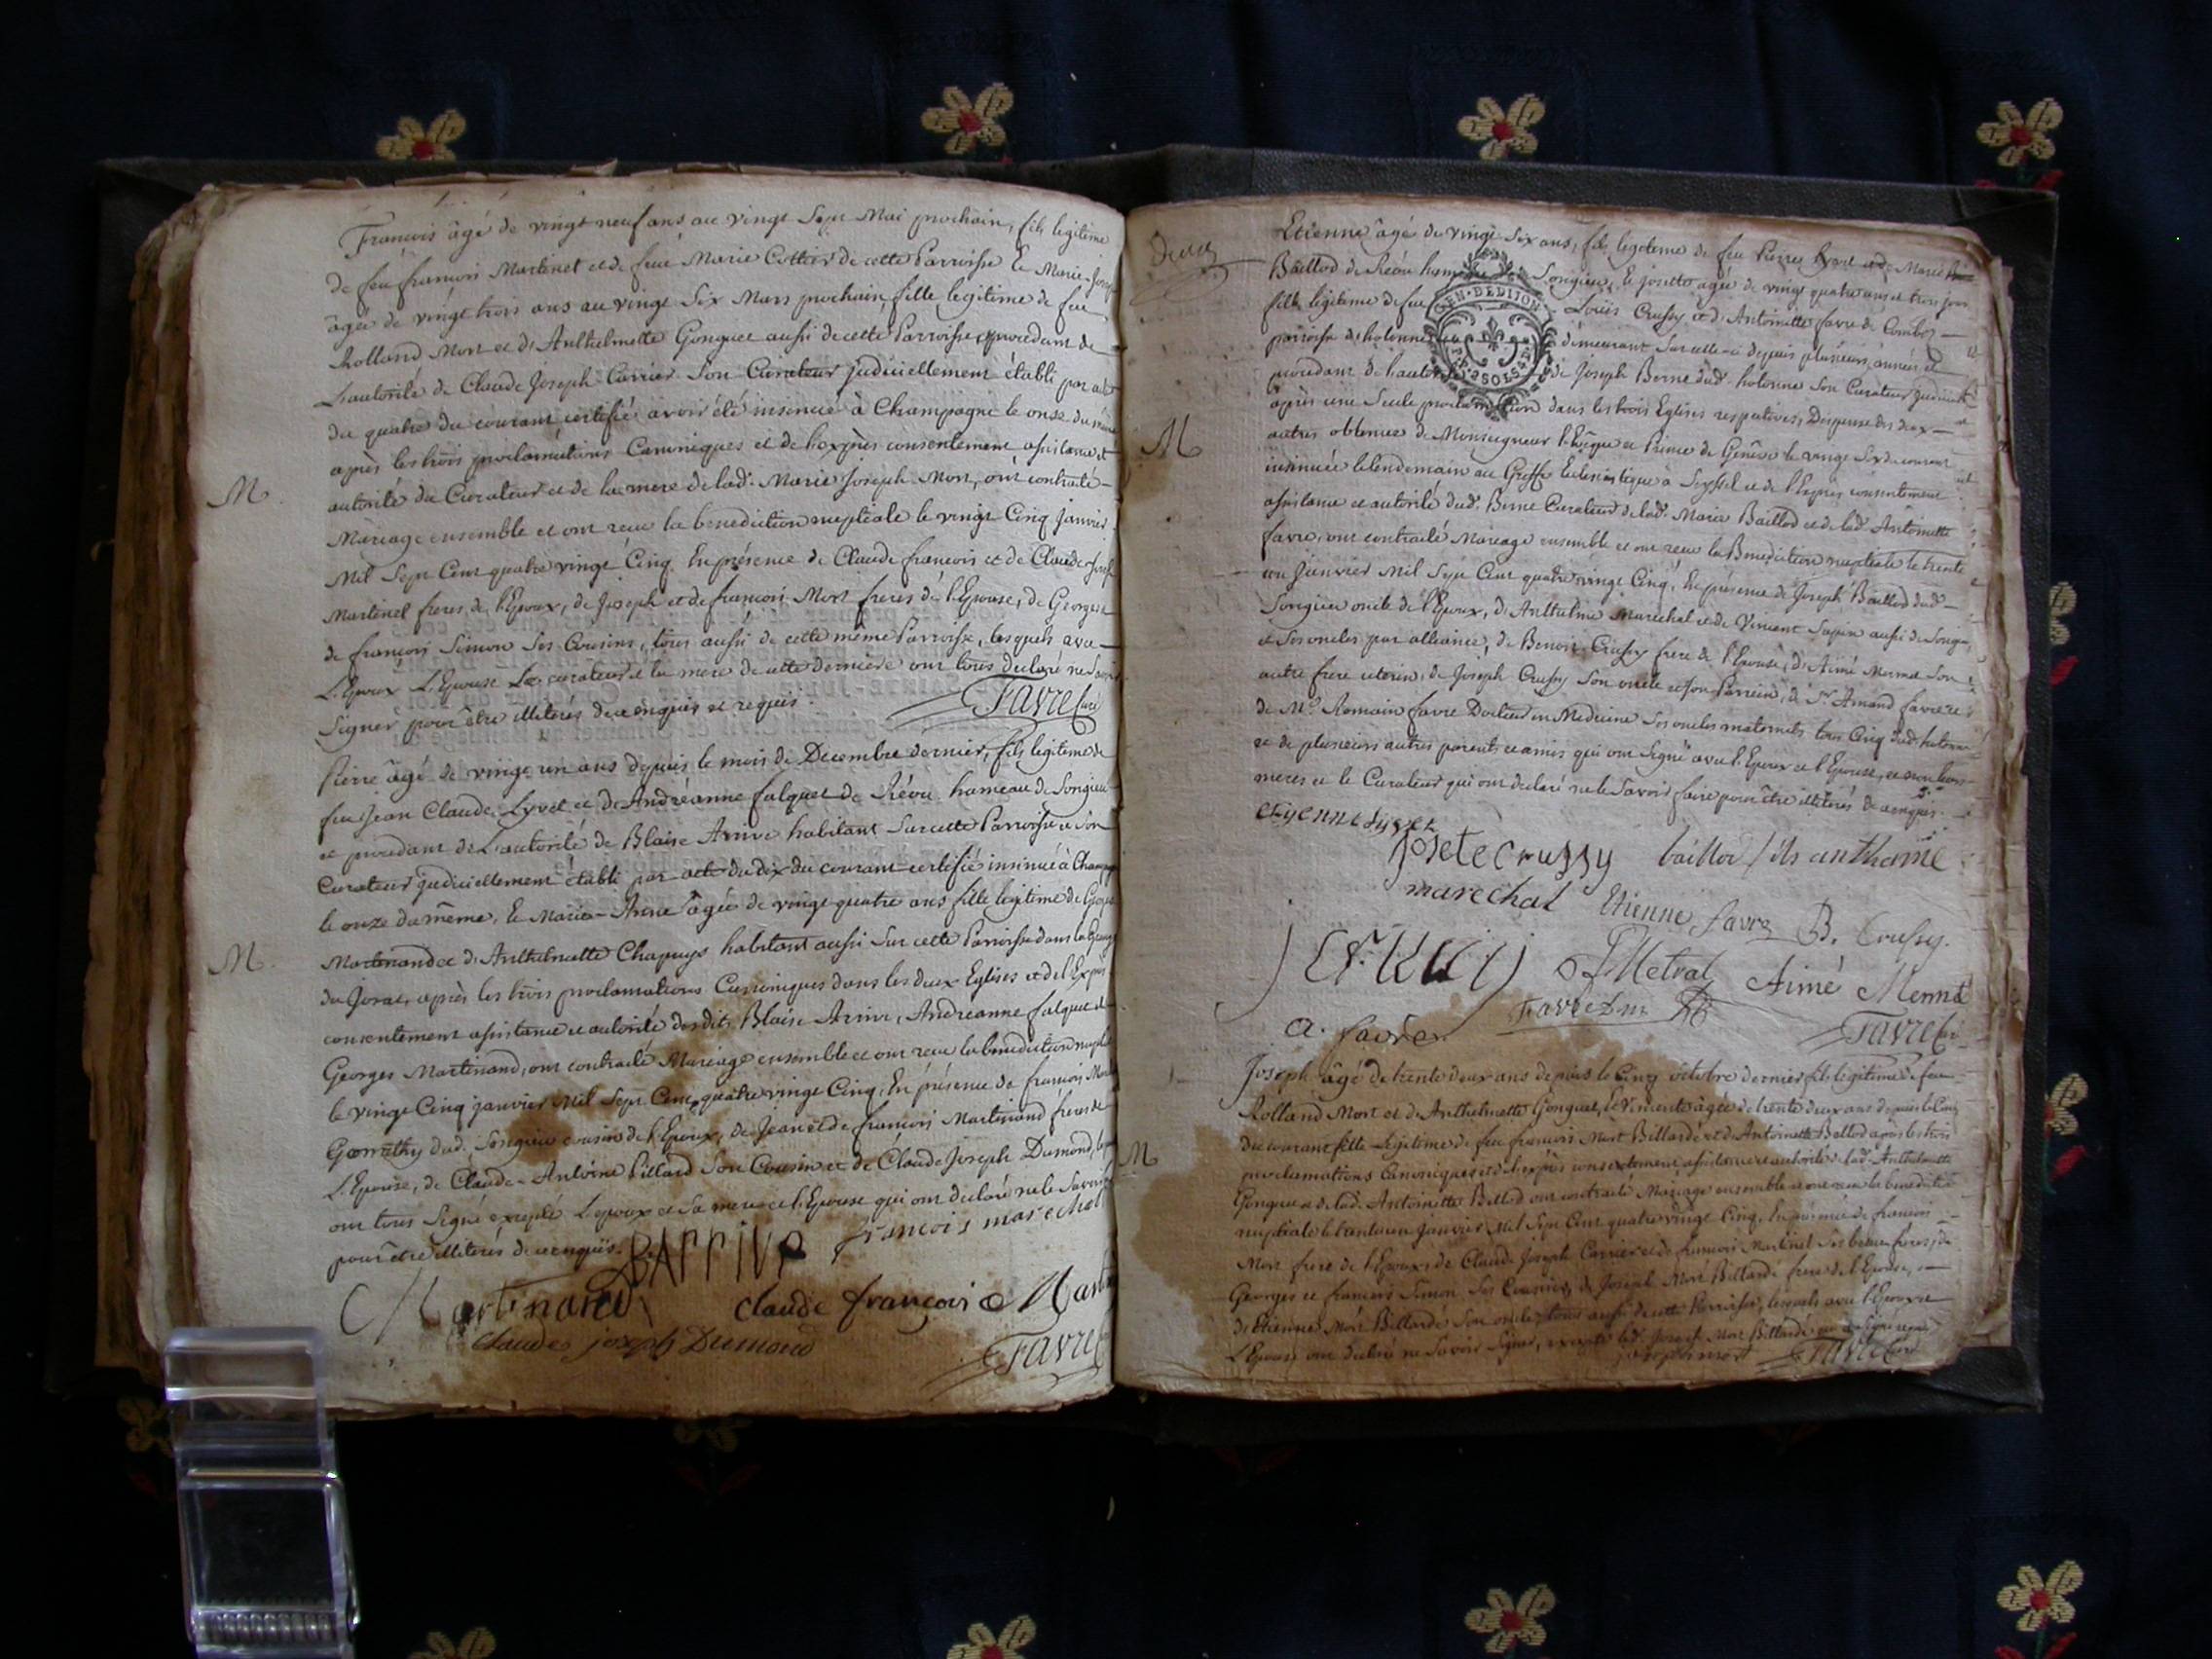 François âgé de vingt neuf ans au vingt Sept Mai prochain, fils legitime
de feu françois Martinet et de feüe Marie Cottier de cette Parroisse Et Marie-Joseph
âgée de vingt trois ans au vingt Six Mars prochain, fille legitime de feu
Rolland Mort et d'Anthelmette Gonguet aussi de cette Parroisse, procedant de
L'autorité de Claude Joseph Carrier Son Curateur judiciellement établi par acte
du quatre du courant certifié avoir été insinué à Champagne le onze du même
après les trois proclamations Canoniques et de l'exprès consentement assistance et
M
autorité du Curateur et de la mere de lad. Marie Joseph Mort, ont contracté
Mariage ensemble et ont reçu la benediction nuptiale le vingt Cinq Janvier
Mil Sept Cent quatre vingt Cinq. En présence de Claude françois et de Claude Joseph
Martinet freres de l'Epoux, de Joseph et de françois Mort freres de l'Epouse, de George et
de françois Simon Ses Cousins, tous aussi de cette même Parroisse, lesquels avec
L'Epoux L'Epouse Le curateur et la mere de cette derniere ont tous declaré ne Savoir
Signer pour être illiterés de ce enquis et requis.
FAVRE Curé
Pierre âgé de vingt un ans depuis le mois de Decembre dernier, fils legitime de
feu Jean Claude Lyvet et d'Andréanne falquet de Réou hameau de Songieu
et procedant de L'autorité de Blaise Arrive habitant Sur cette Parroisse et Son
Curateur judiciellement établi par acte du dix du courant certifié insinué à Champagne
le onze du même, Et Marie-Anne âgée de vingt quatre ans fille legitime de George
M
Martinand et d'Anthelmette Chapuys habitant aussi Sur cette Parroisse dans la Grange
du Jorat, après les trois proclamations Canoniques dans les deux Eglises et de l'Exprès
consentement assistance et autorité desdits Blaise Arrive, Andreanne falquet et
Georges Martinand, ont contracté Mariage ensemble et ont reçu la benediction nuptiale
le vingt Cinq janvier Mil Sept Cent quatre vingt Cinq. En présence de françois
dud. Songieu cousin de l'Epoux, de Jean et de françois Martinand freres de
L'Epouse, de Claude-Antoine Pillard Son Cousin et de Claude Joseph Dumond,
ont tous Signé excepté L'epoux et Sa mere et l'Epouse qui ont declaré ne le Savoir
pour être illiterés de ce enquis.
BARRIVE françois marechal
Martinand claude françois
claude joseph Dumond
FAVRE
Etienne âgé de vingt Six ans, fils legitime de feu Pierre Lyvet et de Marie
Baillod de Réou hameau de Songieu, Et Josette âgée de vingt quatre ans et trois jours
fille legitime de feu Louis Crussy et d'Antoinette favre de Combes
GEN. DE DIJON
parroisse de hotonnes demeurant Sur celle-ci depuis plusieurs années et
procedant de l'autorité de Joseph Berne dud. hotonne Son Curateur judiciel
après une Seule proclamation dans les trois Eglises respectives, Dispense des deux
M
autres obtenue de Monseigneur l'Evêque et Prince de Genève le vingt Six du courant
insinuée le lendemain au Greffe Eclesiastique à Seyssel et de l'Exprès consentement
assistance et autorité dud. Berne Curateur de lad. Marie Baillod et de lad. Antoinette
favre, ont contracté Mariage ensemble et ont reçu la Benediction nuptiale le trente
un Janvier Mil Sept Cent quatre vingt Cinq. En présence de Joseph Baillod dud.
Songieu oncle de l'Epoux, d'Anthelme Marechal et de Vincent Sapin aussi de Songieu
et Ses oncles par alliance, de Benoit Crussy frere de l'Epouse, d'Aimé Mermet Son
autre frere uterin, de Joseph Crussy Son oncle et Son Parrein, de Sr. Amand favre et
de Mr. Romain favre Docteur en Medicine Ses oncles maternels tous Cinq dud. hotonne
et de plusieurs autres parents et amis qui ont Signé avec l'Epoux et l'Epouse, et non leurs
meres et le Curateur qui ont declaré ne le Savoir faire pour être illiterés de ce enquis.
etyenne lyvet
josete crussy baillod fils anthame
marechal Etienne favre B. Crussy.
Metral Aimé Mermet
a. favre FAVRE Dm
FAVRE Curé
Joseph âgé de trente deux ans depuis le Cinq octobre dernier fils legitime de feu
Rolland Mort et d'Anthelmette Gonguet, Et Vincente âgée de trente deux ans depuis le Cinq
du courant fille legitime de feu françois Mort Billardé et d'Antoinette Bellod après les trois
M
proclamations Canoniques et de l'exprès consentement assistance et autorité de lad. Anthelmette
Gonguet et de lad. Antoinette Bellod ont contracté Mariage ensemble et ont reçu la benediction
nuptiale le trente un Janvier Mil Sept Cent quatre vingt Cinq. En présence de françois
Mort frere de l'Epoux, de Claude Joseph Carrier et de françois Martinet Ses beaux freres, de
Georges et françois Simon Ses Cousins, de Joseph Mort Billardé frere de l'Epouse,
d'Etienne Mort Billardé Son oncle, tous aussi de cette Parroisse, lesquels avec l'Epoux et
L'Epouse ont declaré ne Savoir Signer, excepté led. Joseph Mort Billardé
joseph mort FAVRE Curé